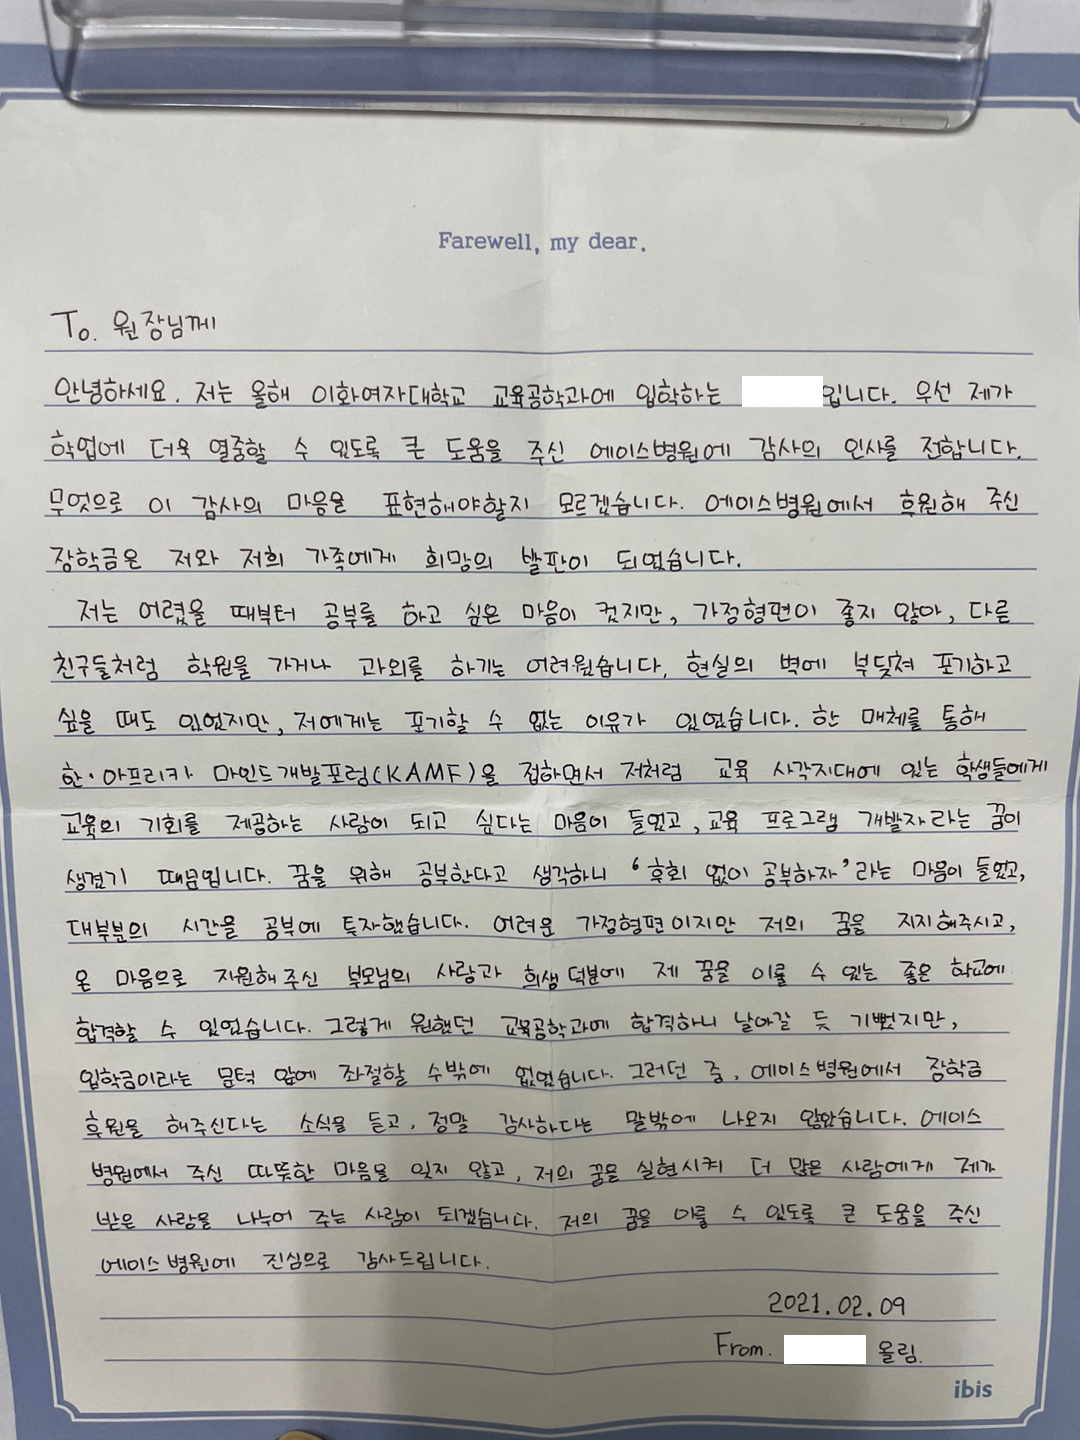 Farewell, my dear.
To. 원장님께
안녕하세요. 저는 올해 이화여자대학교 교육공학과에 입학하는 입니다. 우선 제가
학업에 더욱 열중할 수 있도록 큰 도움을 주신 에이스병원에 감사의 인사를 전합니다.
무엇으로 이 감사의 마음을 표현해야할지 모르겠습니다. 에이스병원에서 후원해 주신
장학금은 저와 저희 가족에게 희망의 발판이 되었습니다.
저는 어렸을 때부터 공부를 하고 싶은 마음이 컸지만, 가정형편이 좋지 않아, 다른
친구들처럼 학원을 가거나 과외를 하기는 어려웠습니다. 현실의 벽에 부딪쳐 포기하고
싶을 때도 있었지만, 저에게는 포기할 수 없는 이유가 있었습니다. 한 매체를 통해
한·아프리카 마인드개발포럼(KAMF)을 접하면서 저처럼 교육 사각지대에 있는 학생들에게
교육의 기회를 제공하는 사람이 되고 싶다는 마음이 들었고, 교육 프로그램 개발자라는 꿈이
생겼기 때문입니다. 꿈을 위해 공부한다고 생각하니 ‘후회 없이 공부하자’라는 마음이 들었고,
대부분의 시간을 공부에 투자했습니다. 어려운 가정형편이지만 저의 꿈을 지지해주시고,
온 마음으로 지원해 주신 부모님의 사랑과 희생 덕분에 제 꿈을 이룰 수 있는 좋은 학교에
합격할 수 있었습니다. 그렇게 원했던 교육공학과에 합격하니 날아갈 듯 기뻤지만,
입학금이라는 문턱 앞에 좌절할 수밖에 없었습니다. 그러던 중, 에이스병원에서 장학금
후원을 해주신다는 소식을 듣고, 정말 감사하다는 말밖에 나오지 않았습니다. 에이스
병원에서 주신 따뜻한 마음을 잊지 않고, 저의 꿈을 실현시켜 더 많은 사람에게 제가
받은 사랑을 나누어 주는 사람이 되겠습니다. 저의 꿈을 이룰 수 있도록 큰 도움을 주신
에이스병원에 진심으로 감사드립니다.
2021.02.09
From. 올림.
ibis